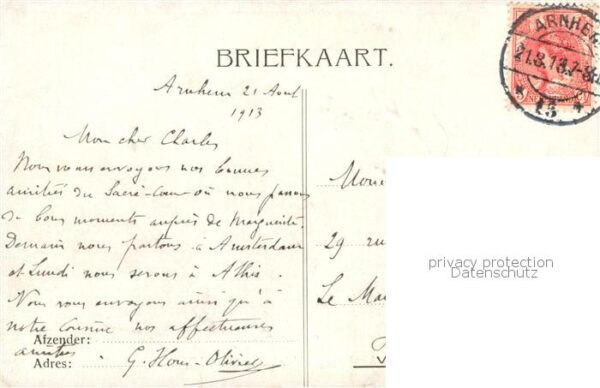 BRIEFKAART.
ARNHEM
21.8.13.7-8
15
Arnhem 21 Aout
1913
Mon cher Charles
Nous vous envoyons nos bonnes
amitiés du Sacré-Coeur où nous passons
de bons moments auprès de Marguerite.
Demain nous partons à Amsterdam
et Lundi nous serons à Athis.
Nous vous envoyons ainsi qu'à
notre cousine nos affectueuses
Afzender:
amitiés
Adres:
G. -Olivier
29 rue
Le
privacy protection
Datenschutz